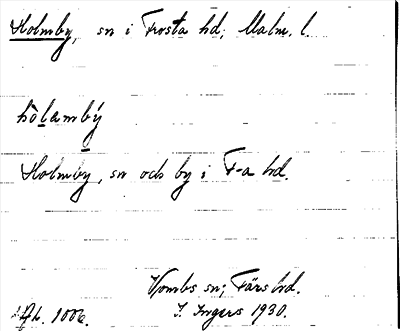 Holmby, sn i Frosta hd, Malm. l.
hòlambý
Holmby, sn och by i F-a hd.
Vombs sn; Färs hd.
Afh. 1006. I. Ingers 1930.